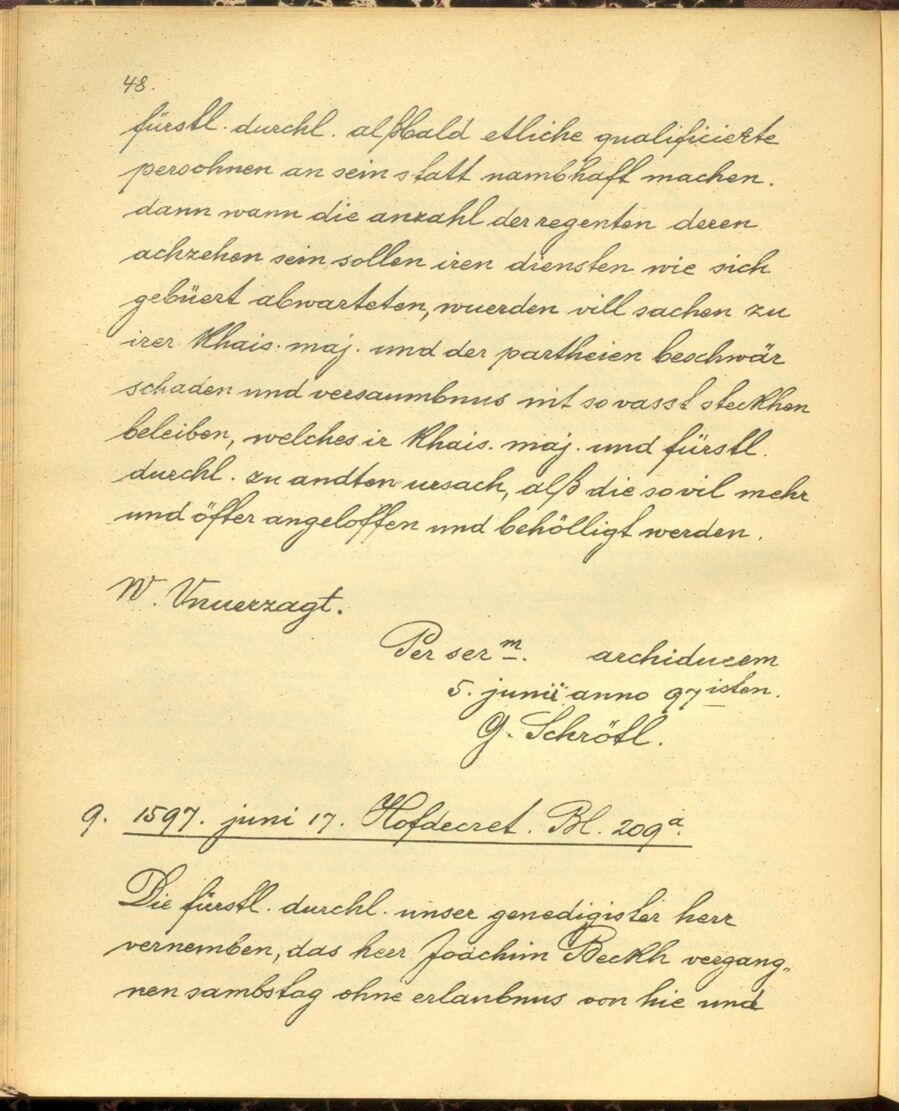 48.
fürstl. durchl. alßbald etliche qualificierte
persohnen an sein statt nambhaft machen.
dann wann die anzahl der regenten deren
achzehen sein sollen iren diensten wie sich
gebüert abwarteten, wuerden vill sachen zu
irer Khais. maj. und der partheien beschwär
schaden und versaumbnus nit so vasst steckhen
beleiben, welches ir Khais. maj. und fürstl.
durchl. zu andten ursach, alß die so vil mehr
und öfter angeloffen und behölligt werden.
W. Vnuerzagt.
Per ser m. archiducem
5. junii anno 97 isten.
G. Schrötl.
9. 1597. juni 17. Hofdecret. Bl. 209 a.
Die fürstl. durchl. unser genedigister herr
vernemben, das herr Joachim Beckh vergang„
nen sambstag ohne erlaubnus von hie und